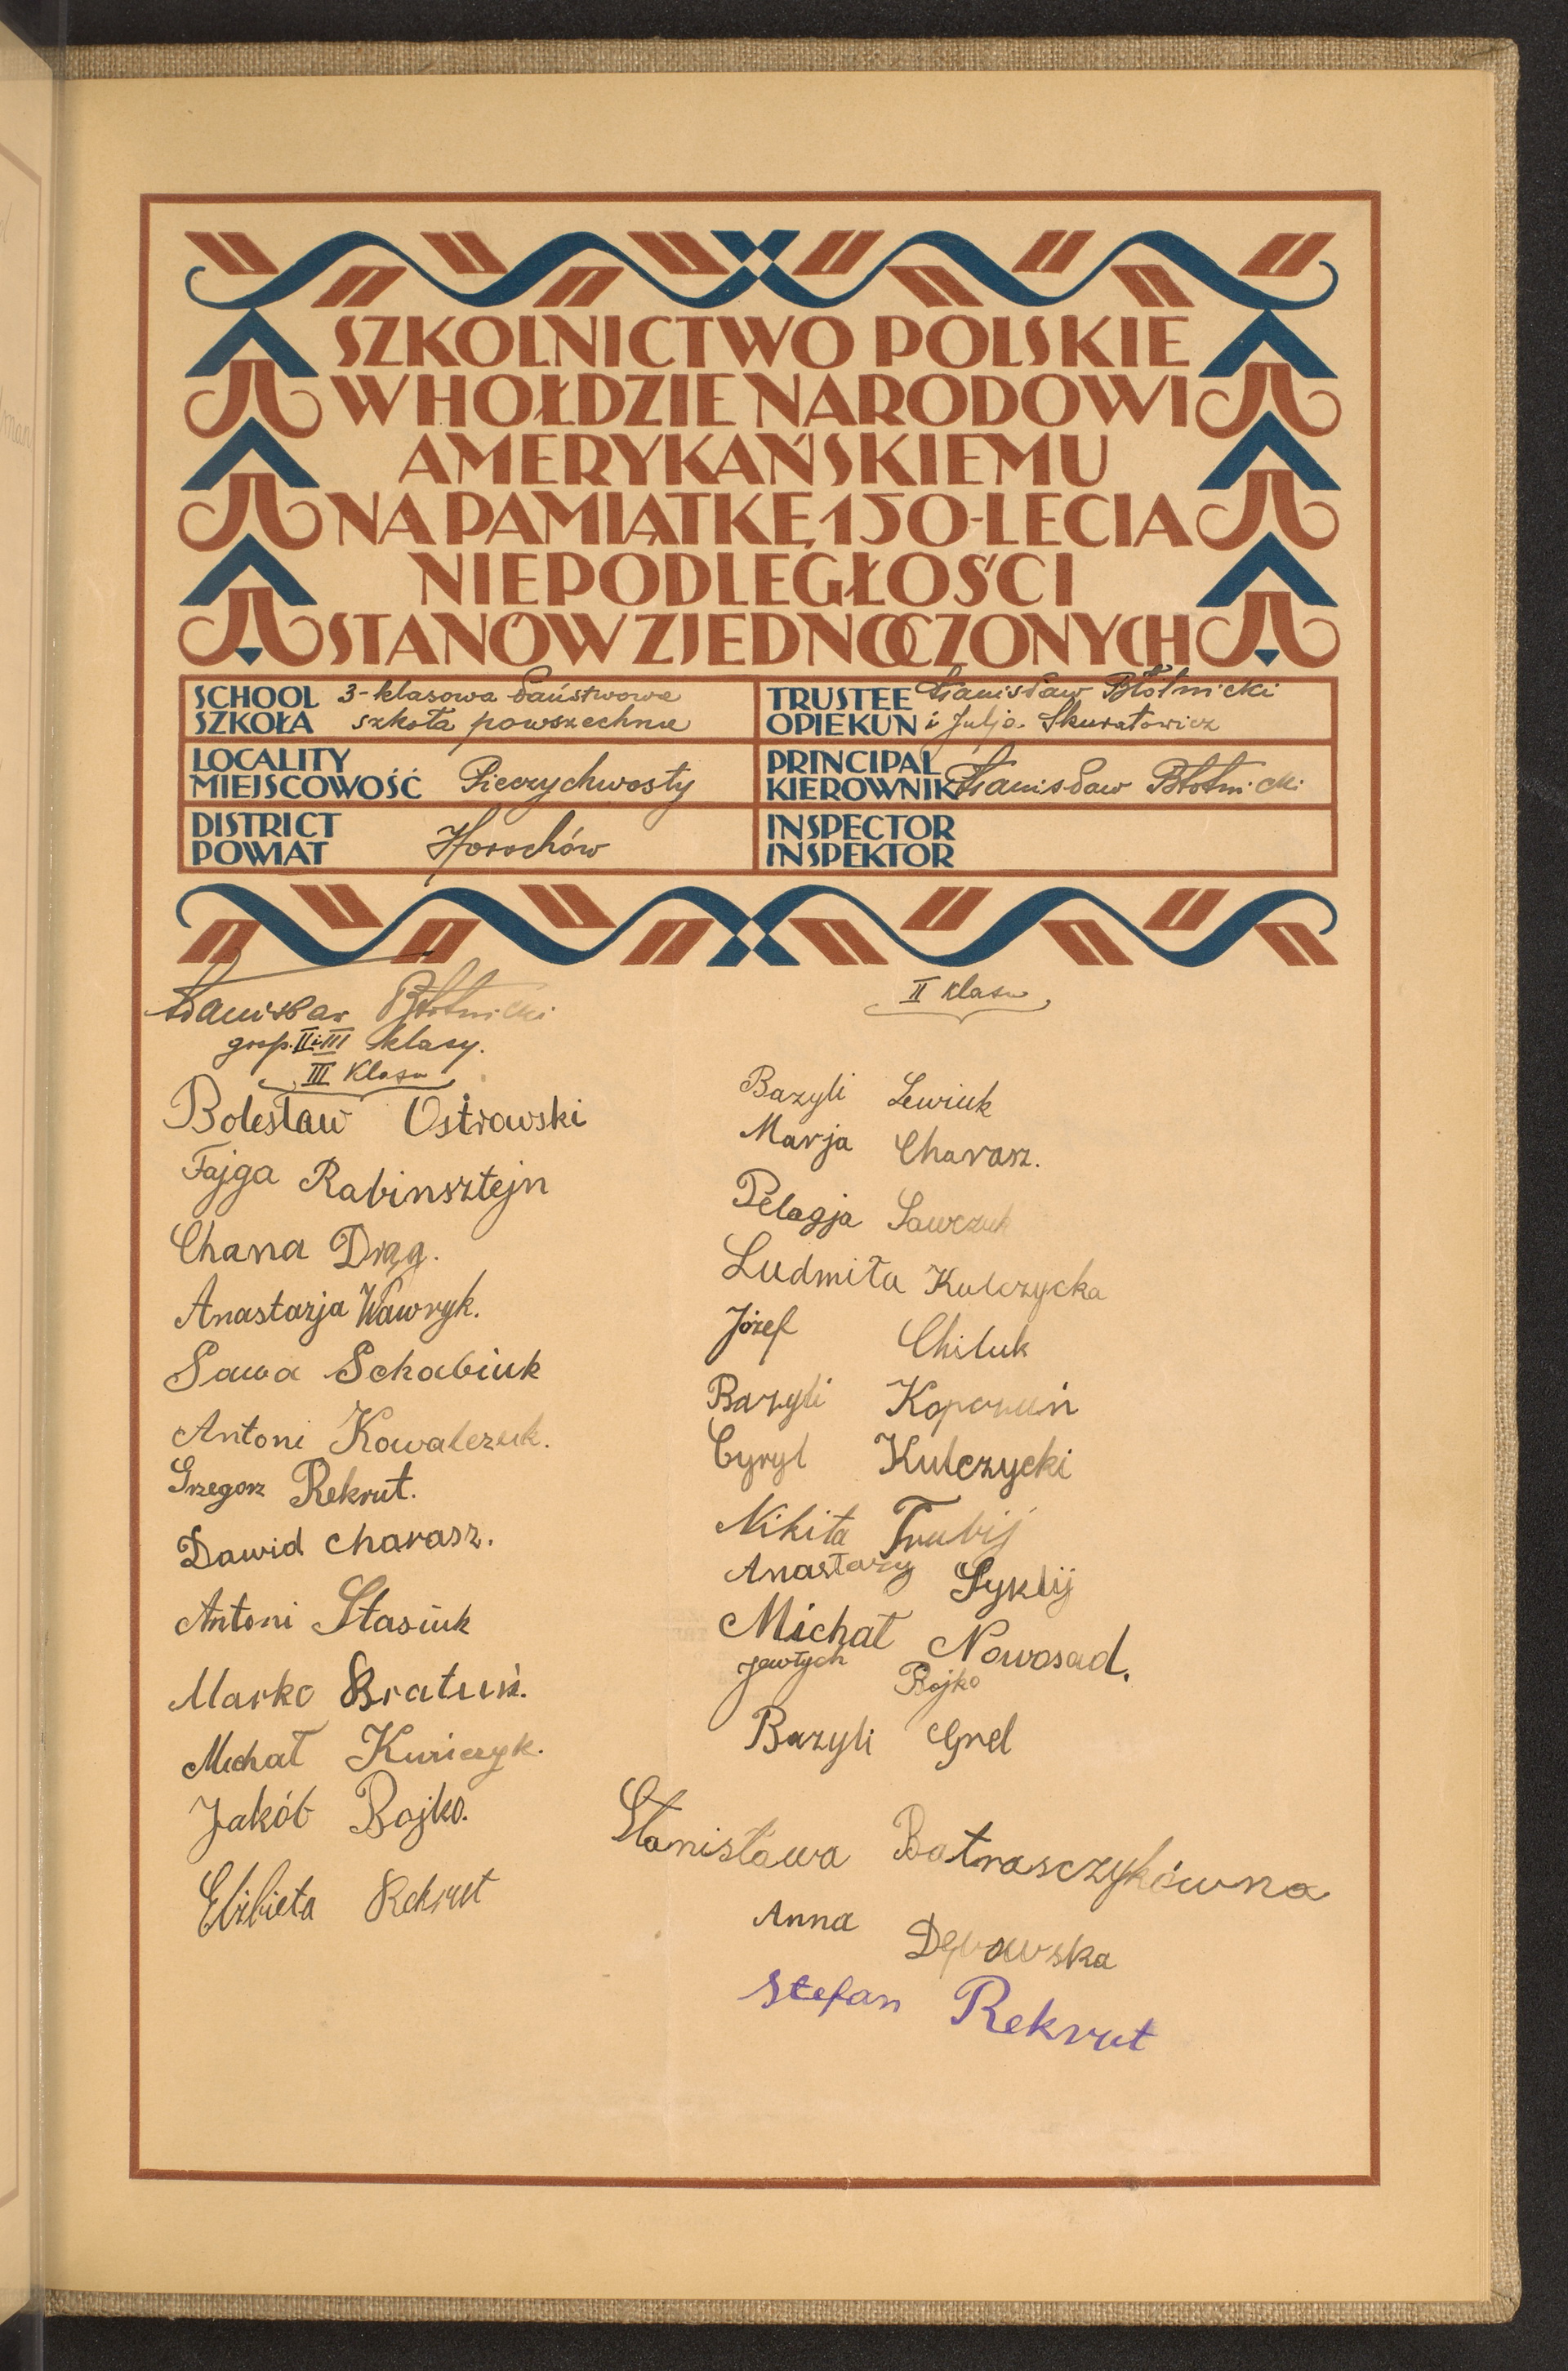 SZKOLNICTWO POLSKIE
W HOŁDZIE NARODOWI
AMERYKAŃSKIEMU
NA PAMIĄTKĘ 150-LECIA
NIEPODLEGŁOŚCI
STANÓW ZJEDNOCZONYCH
SCHOOL 3-klasowa Państwowa
SZKOŁA szkoła powszechna
TRUSTEE Stanisław Błotnicki
OPIEKUN i Julja Skuratowicz
LOCALITY
MIEJSCOWOŚĆ Pieczychwosty
PRINCIPAL
KIEROWNIK Stanisław Błotnicki
DISTRICT
POWIAT Horochów
INSPECTOR
INSPEKTOR
Stanisław Błotnicki
gosp. II i III klasy.
III Klasa
Bolesław Ostrowski
Fajga Rabinsztejn
Chana Drąg.
Anastazja Wawryk.
Sawa Schabiuk
Antoni Kowalczuk.
Grzegorz Rekrut.
Dawid Charasz.
Antoni Stasiuk
Marko Bratuń.
Michał
Jakób Bojko.
Elżbieta Rekrut
II klasa
Bazyli Lewiuk
Marja Charasz.
Pelagja Sawczuk
Ludmiła Kulczycka
Józef Chiluk
Bazyli
Cyryl Kulczycki
Nikita Trubij
Anastazy Sykłij
Michał Nowosad.
Jewtych Bojko
Bazyli Grel
Stanisława Batrasczykówna
Anna Dębowska
Stefan Rekrut